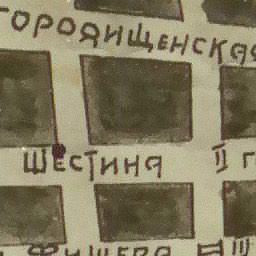 ГОРОДИЩЕНСКАЯ
ШЕСТИНА II Г
ФИШЕРА III